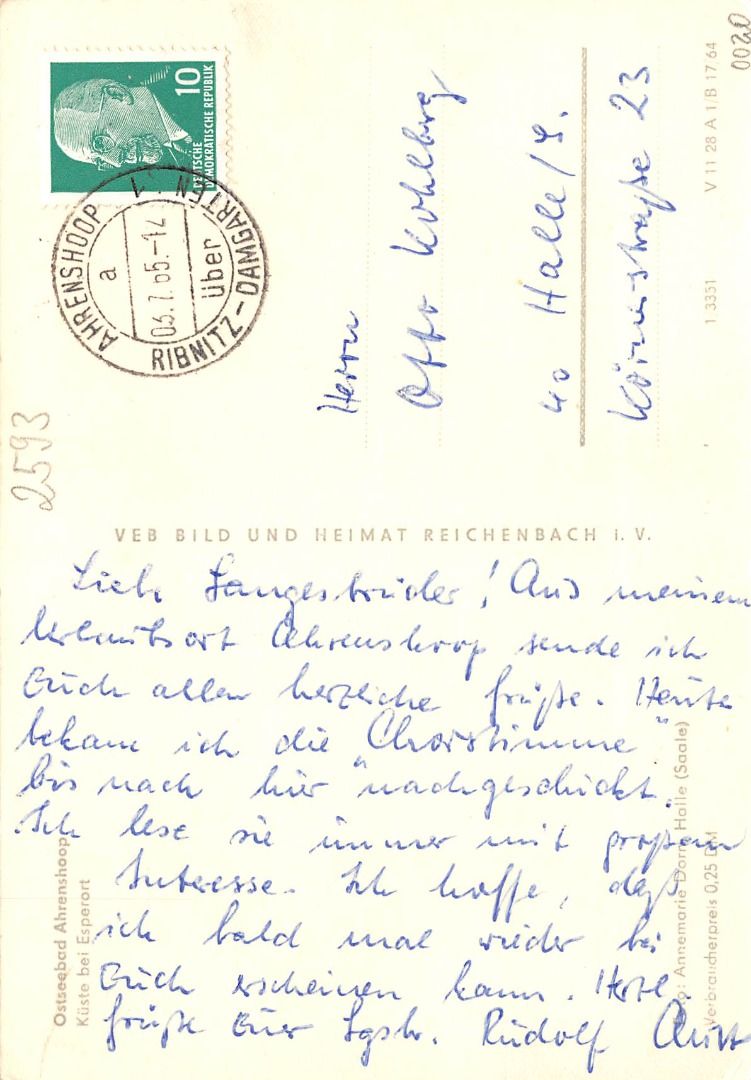 10
DEUTSCHE
DEMOKRATISCHE REPUBLIK
AHRENSHOOP
a
03.7.65.-12
über
RIBNITZ-DAMGARTEN 1
0020
V 11 28 A 1/B 17 64
1 3331
Herrn
Otto Kohlberg
40 Halle/S.
Körnerstraße 23
2593
VEB BILD UND HEIMAT REICHENBACH i. V.
Liebe Sangesbrüder! Aus meinem
Urlaubsort Ahrenshoop sende ich
Euch allen herzliche Grüße. Heute
bekam ich die "Chorstimme"
bis nach hier nachgeschickt.
Ich lese sie immer mit großem
Interesse. Ich hoffe, daß
ich bald mal wieder bei
Euch erscheinen kann. Herzl.
Grüße Euer Sgsbr. Rudolf
Ostseebad Ahrenshoop
Küste bei Esperort
Annemarie Dorn, Halle (Saale)
Verbraucherpreis 0,25 DM